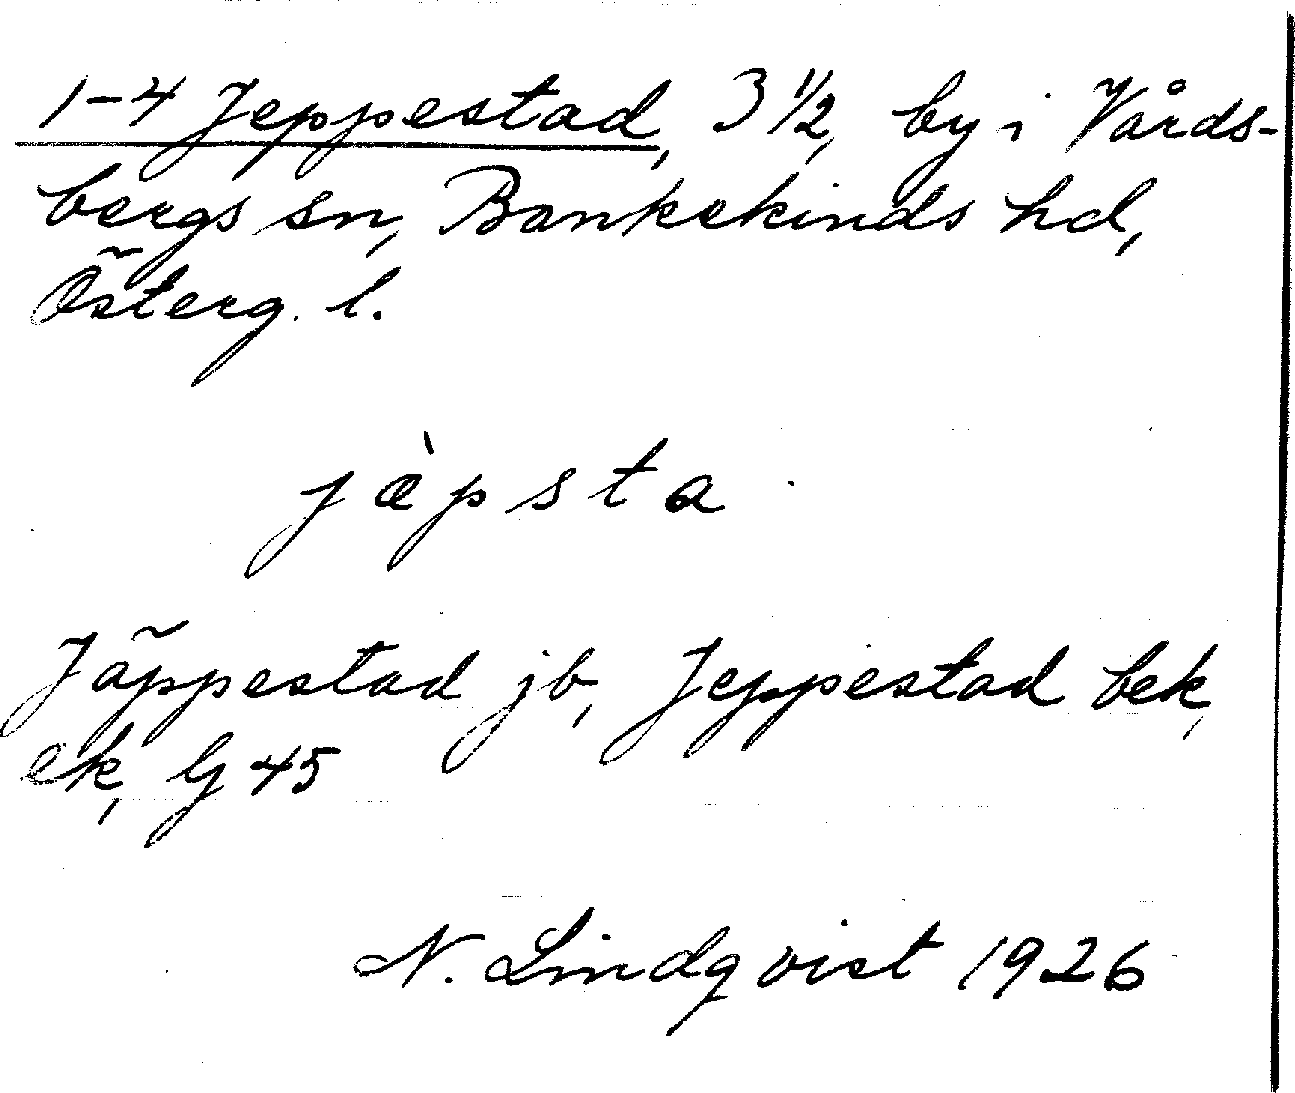 1-4 Jeppestad, 3 1/2, by i Vårds-
bergs sn, Bankekinds hd,
Österg. l.
jæ̀psta
Jäppestad jb, Jeppestad bek,
ek, G 45
N. Lindqvist 1926